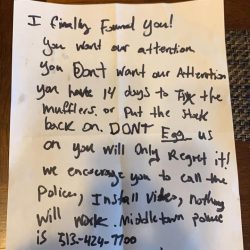 I finally Found You!
You want our attention
you Don't want our Attention
you have 14 days to Fix the
mufflers. or Put the stock
back on. DONT Egg us
on you will Only Regret it!
we encourage you to call the
Police, Install Video, nothing
will work. Middletown police
is 513-424-7700